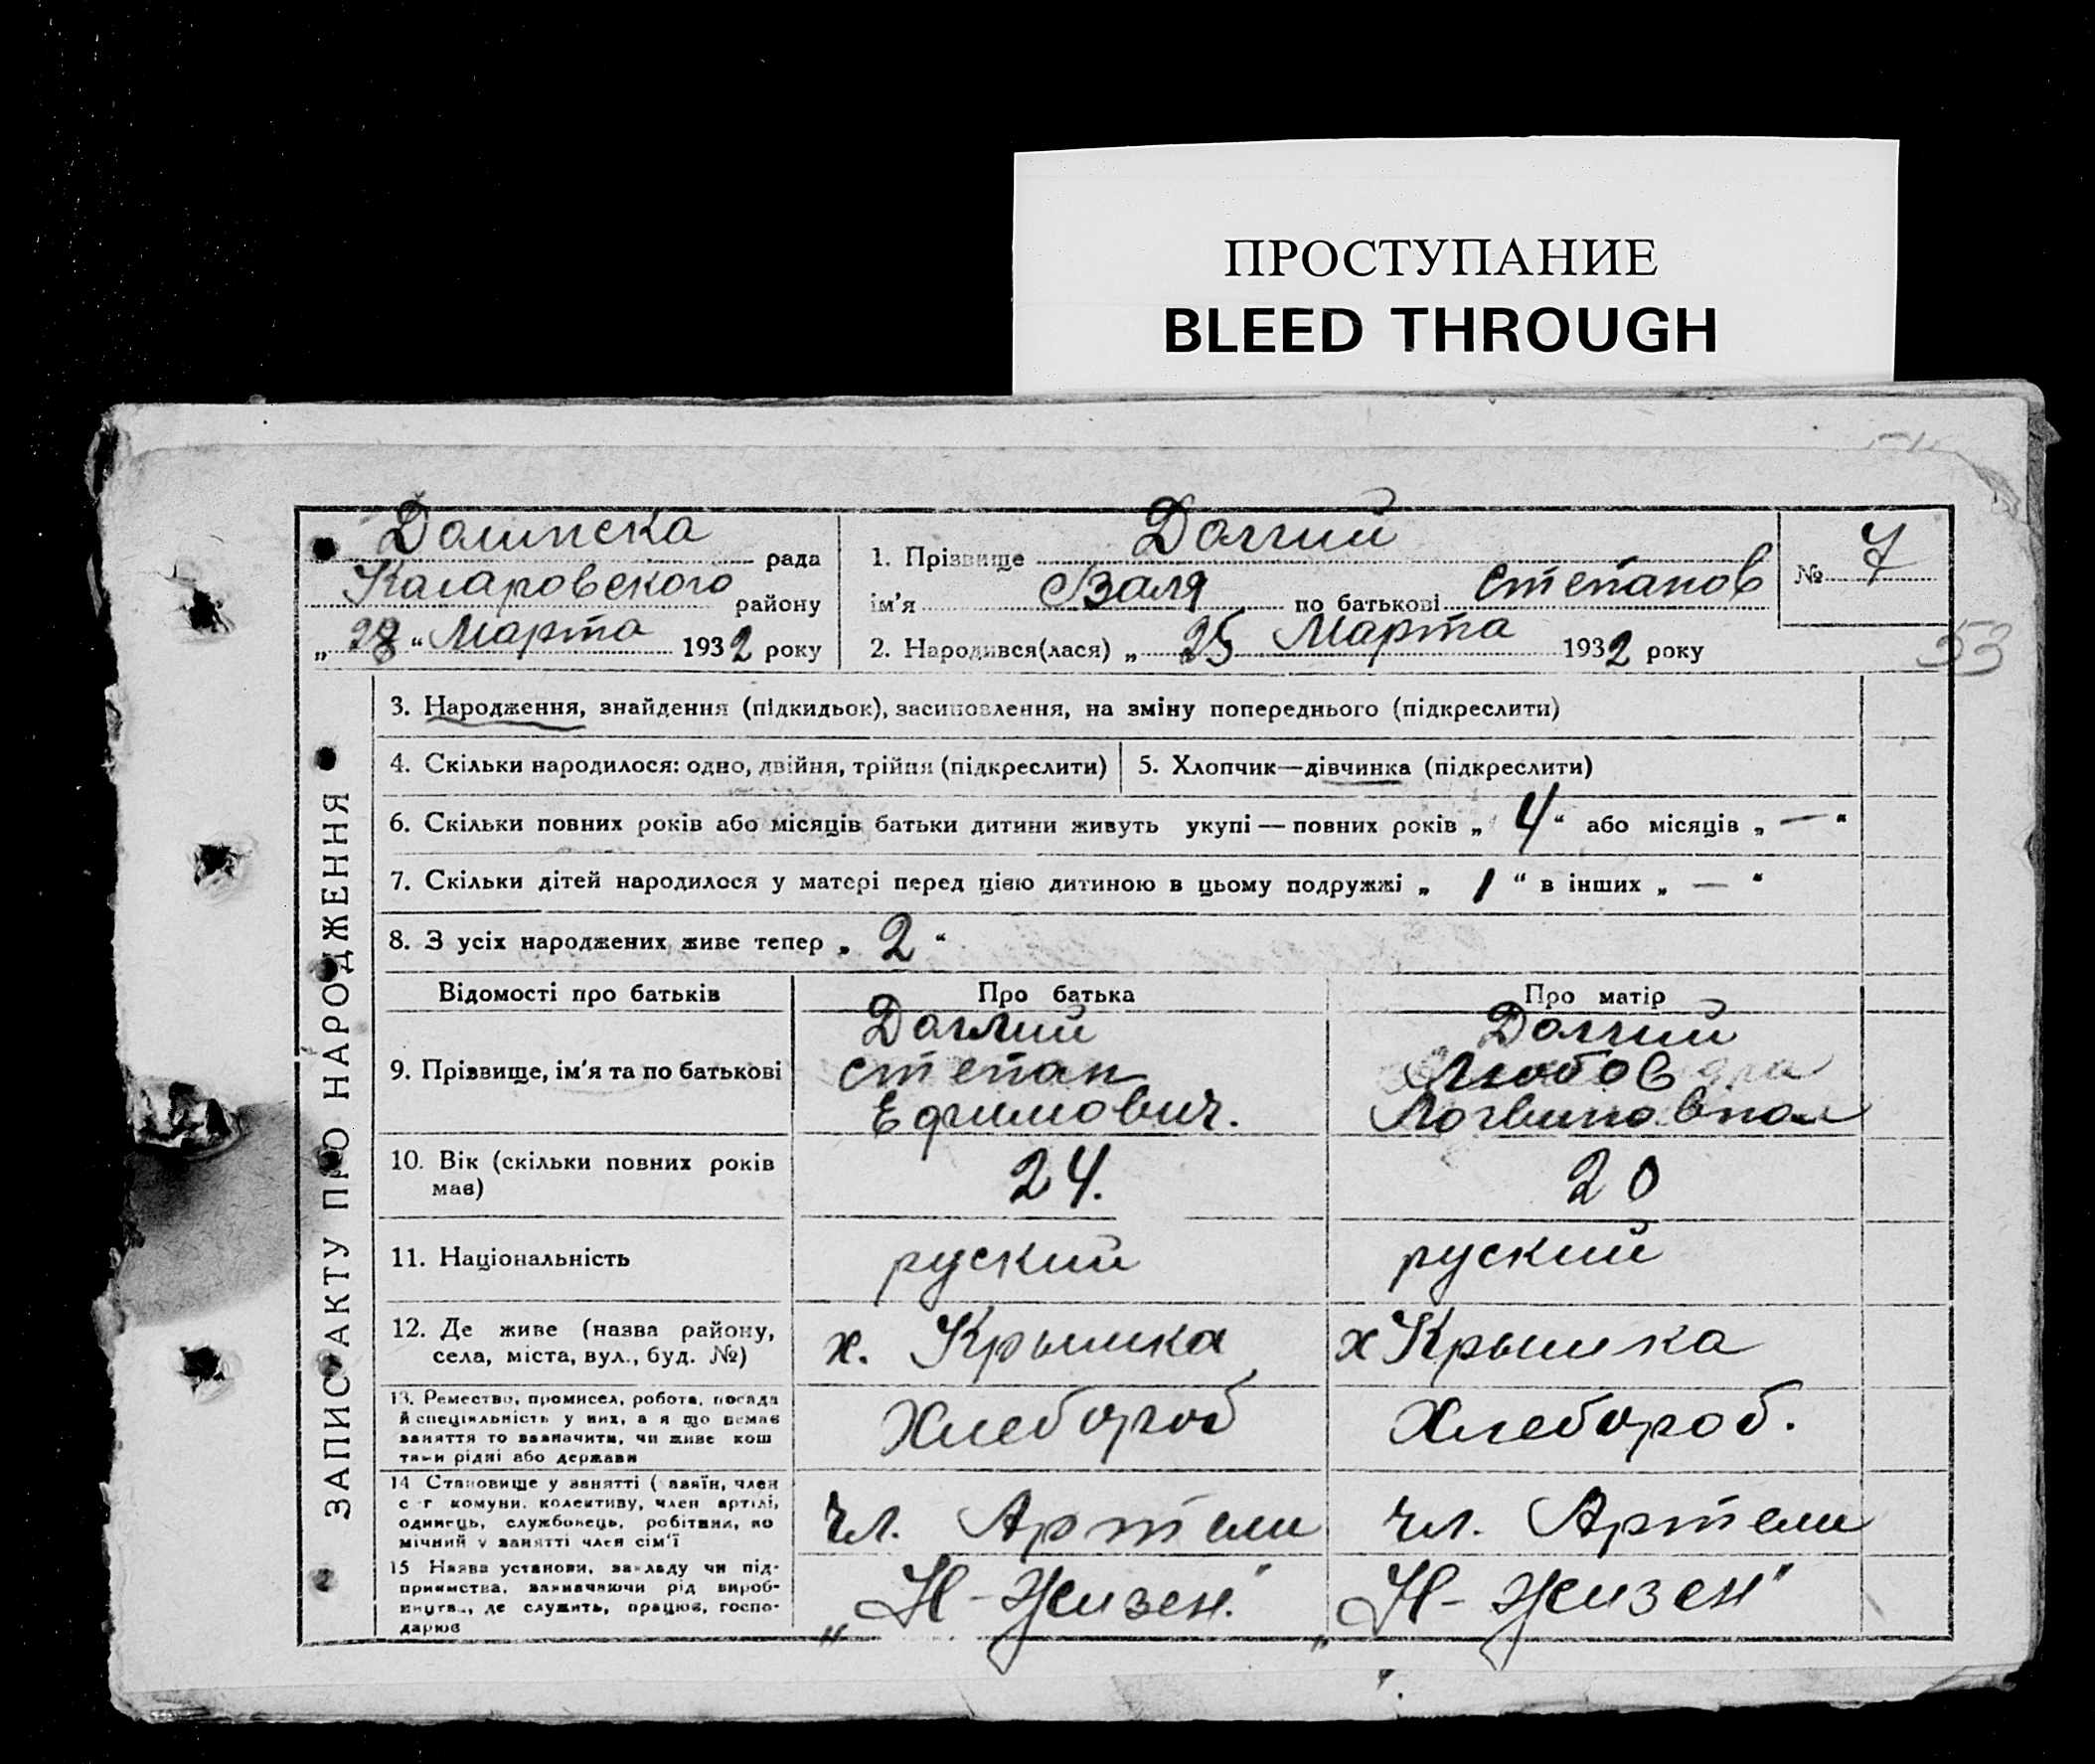 ПРОСТУПАНИЕ
BLEED THROUGH
Долинска рада
района
„28“ Марта 1932 року
1. Прізвище Долгий
ім'я Валя по батькові Степанов
2. Народився(лася) „25 Марта 1932 року
№ 7
53
ЗАПИС АКТУ ПРО НАРОДЖЕННЯ
3. Народження, знайдення (підкидьок), засиновлення, на зміну попереднього (підкреслити)
4. Скільки народилося: одно, двійня, трійня (підкреслити)
5. Хлопчик—дівчинка (підкреслити)
6. Скільки повних років або місяців батьки дитини живуть укупі — повних років „ 4 “ або місяців „ — “
7. Скільки дітей народилося у матері перед цією дитиною в цьому подружжі „ 1 “ в інших „ — “
8. З усіх народжених живе тепер „ 2 “
Відомості про батьків
Про батька
Про матір
9. Прізвище, ім'я та по батькові
Долгий
Степан
Ефимович.
Долгий
Любов
Логвиновная
10. Вік (скільки повних років
має)
24.
20
11. Національність
руский
руский
12. Де живе (назва району,
села, міста, вул., буд. №)
х. Крымка
х Крымка
13. Ремество, промисел, робота, посада
й спеціяльність у них, а я що немає
заняття то зазначити, чи живе кош
тами рідні або держави
Хлебороб
Хлебороб.
14 Становище у занятті (хазяїн, член
с г комуни, колективу, член артілі,
одинець, службовець, робітник, по
мічний у занятті член сім'ї
чл. Артели
чл. Артели
15 Назва установи, закладу чи під-
приємства, зазначаючи рід вироб-
ництва, де служить, працює, госпо-
дарює
„Н-Жизен“
„Н-Жизен“